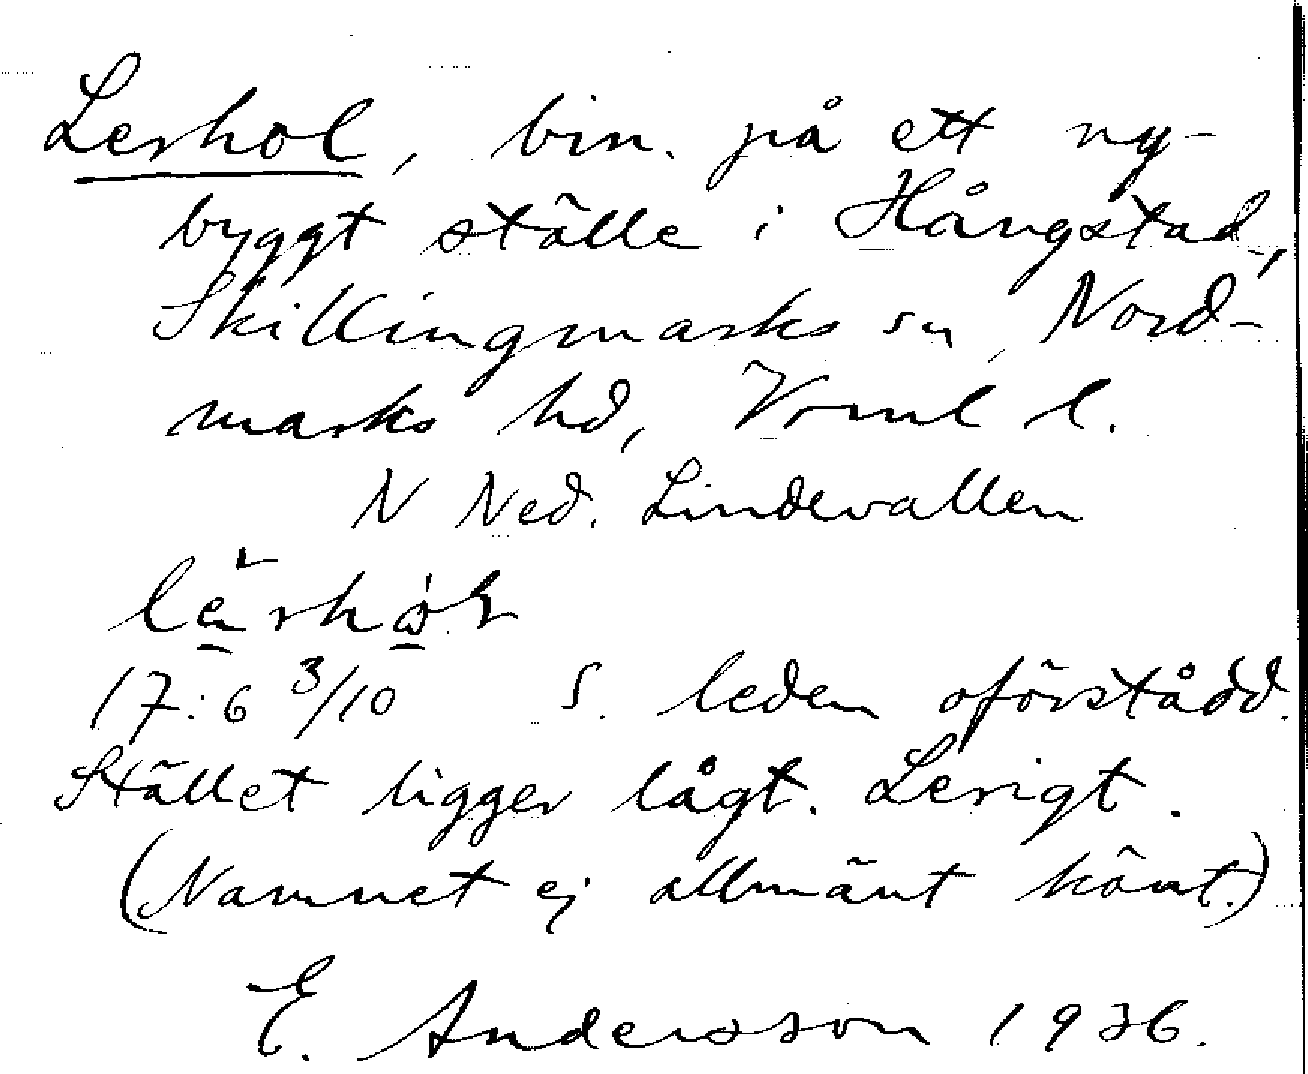 Lerhol, bin. på ett ny-
byggt ställe i Hångstad,
Skillingmarks sn, Nord-
marks hd, Vrml l.
N Ned. Lindevallen
17:6 3/10 S. leden oförstådd.
Stället ligger lågt. Lerigt.
(Namnet ej allmänt känt.)
E. Andersson 1936.